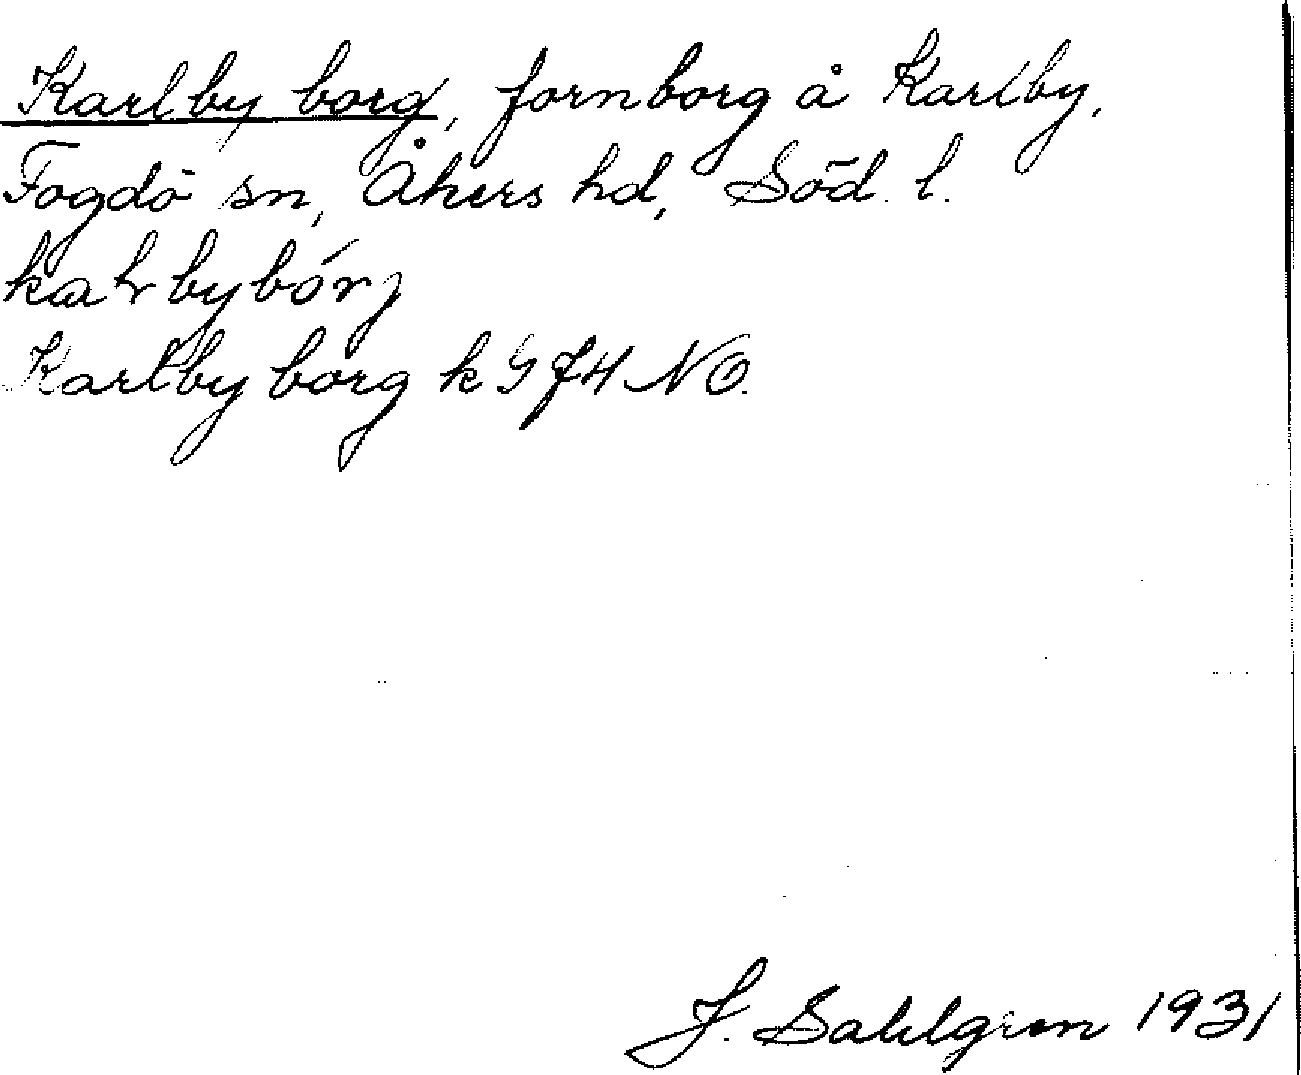 Karlby borg, fornborg å Karlby,
Fogdö sn, Åkers hd, Söd. l.
Karlby borg k 9 f4 NO.
J. Sahlgren 1931